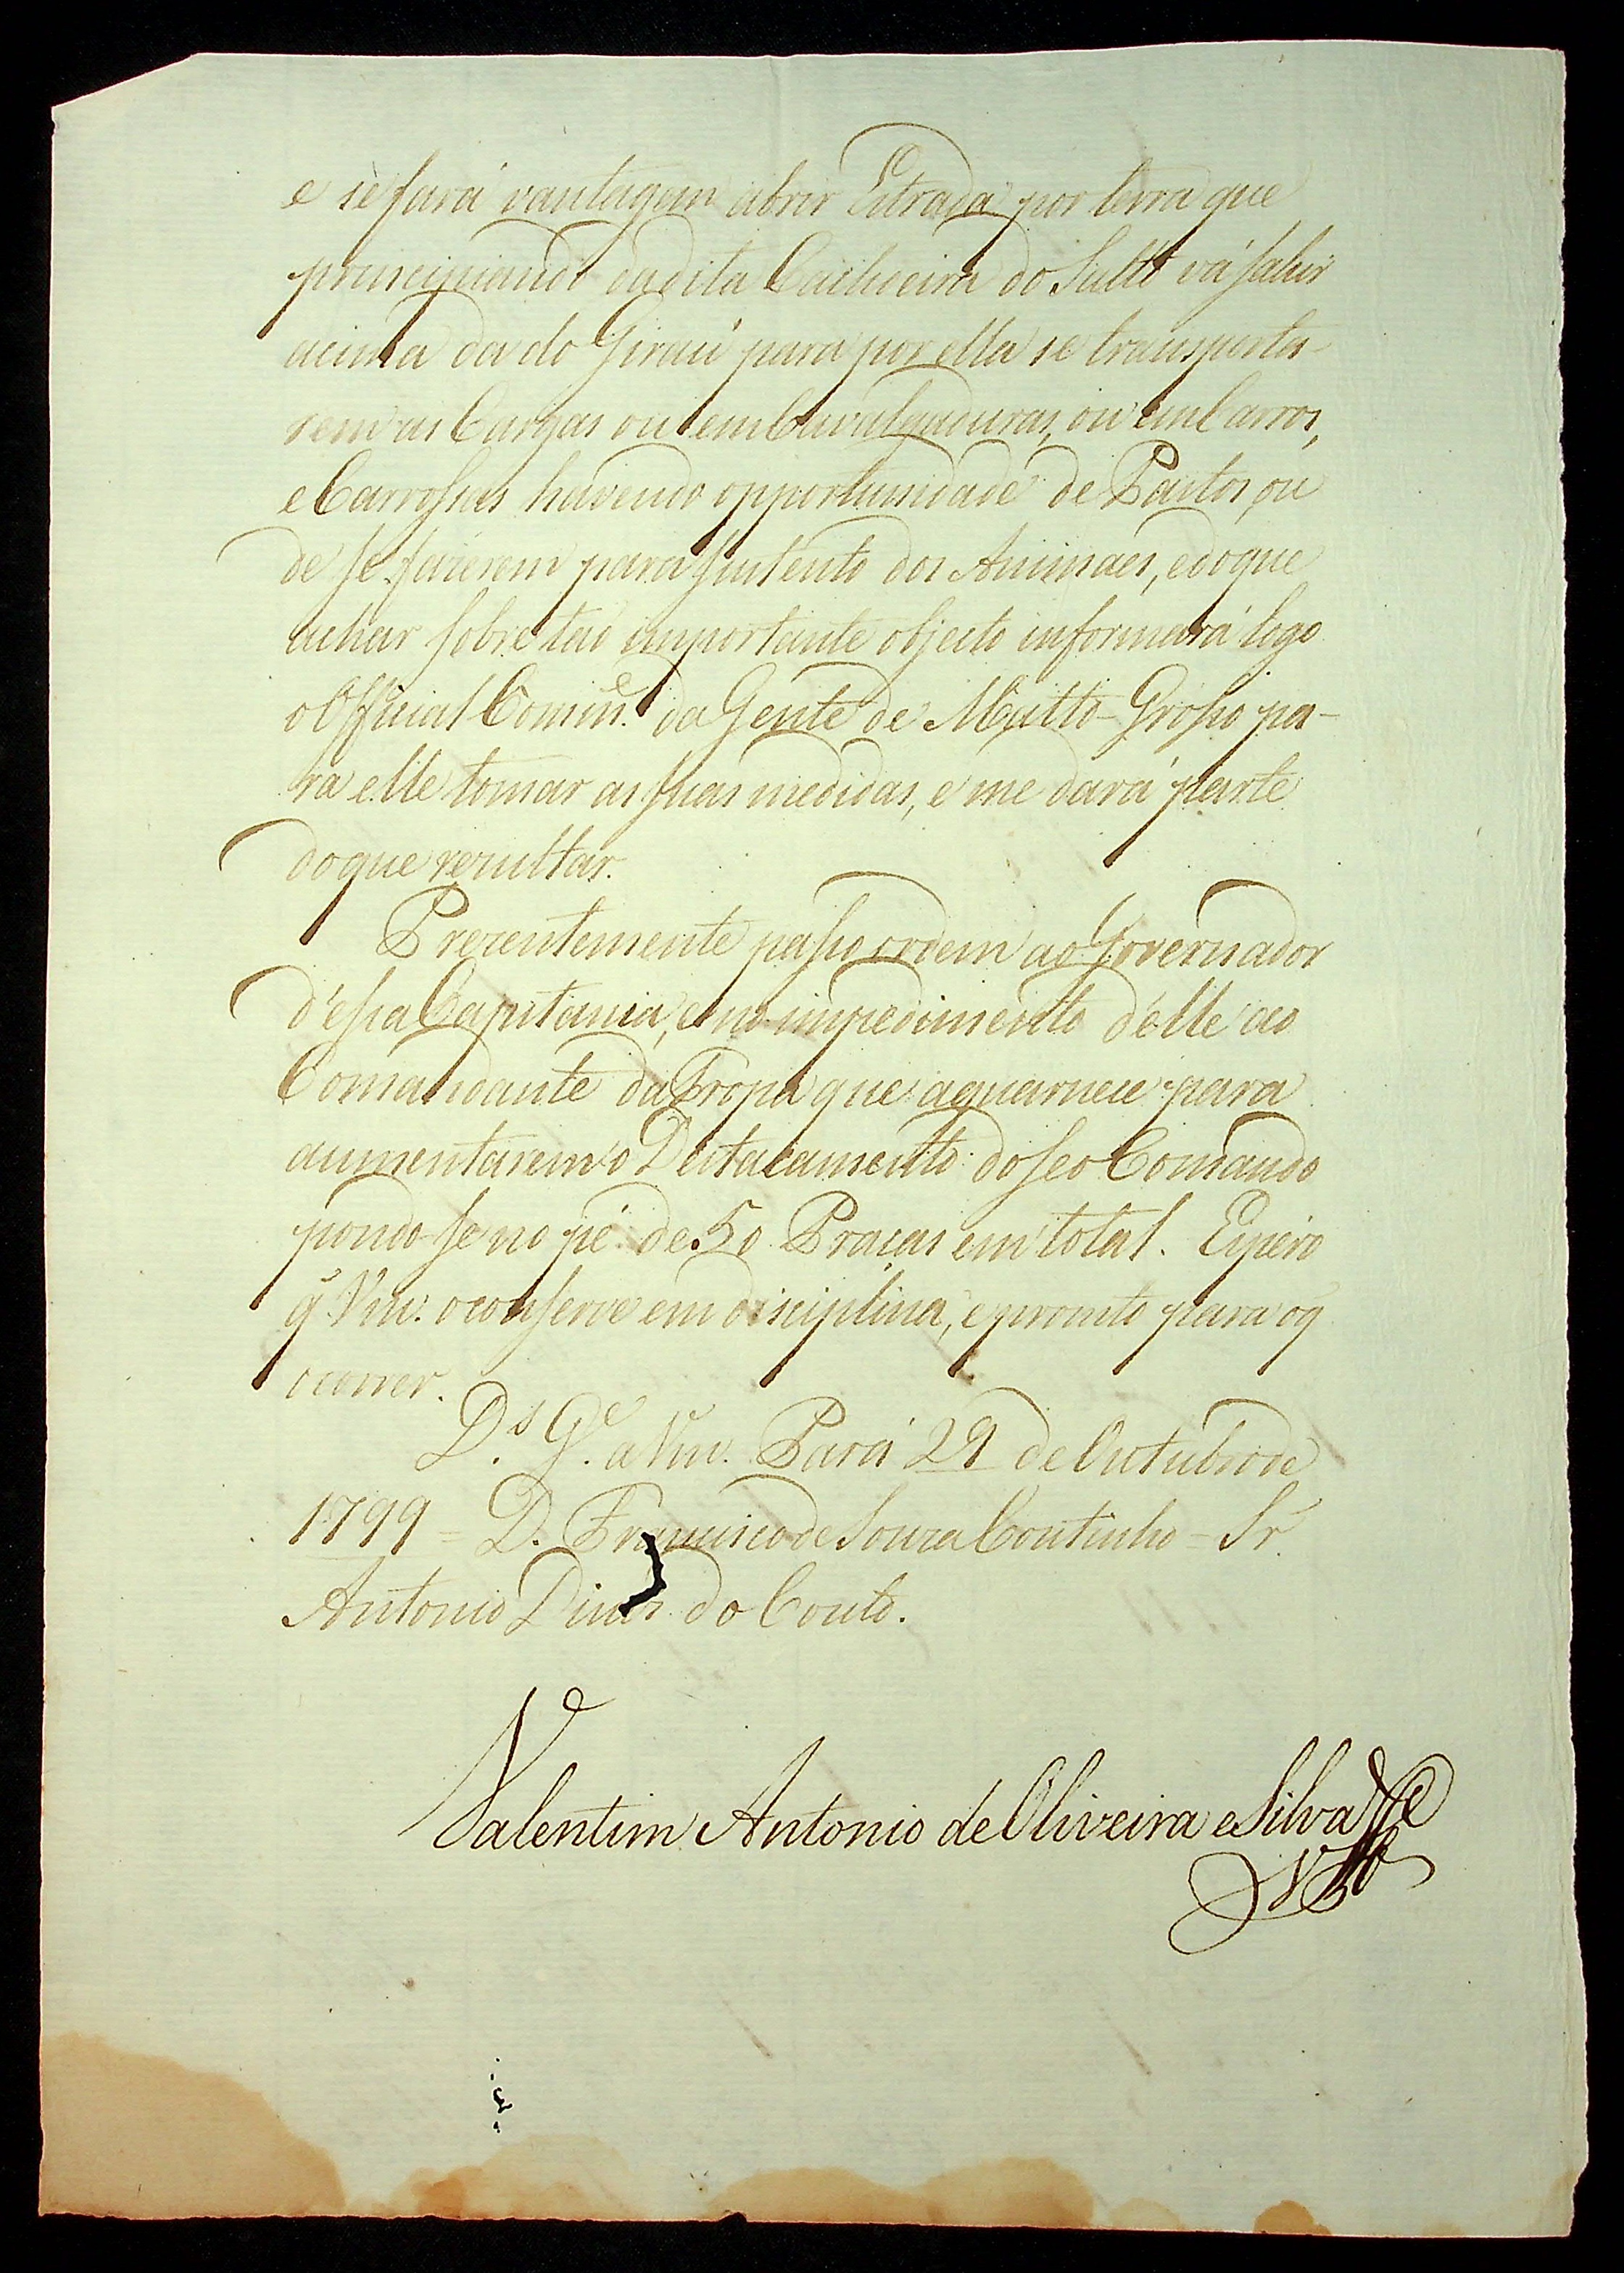 e se fará vantagem abrir Estrada por terra que
principiando da dita Cachoeira do Salto vá sahir
acima da do Giraú para por ella se transporta-
rem as Cargas ou em Cavalgaduras, ou em Carros,
e Carrossas havendo opportunidade de Pastos, ou
de se fazerem para sustento dos Animaes, e do que
achar sobre tao importante objecto informará logo
o Official Comm.e da Gente de Matto-Grosso pa-
ra elle tomar as suas medidas, e me dará parte
do que rezultar.
Prezentemente passo ordem ao Governador
d'essa Capitania, e no impedimento d'elle ao
Comandante da Tropa que a guarnece para
aumentarem o Destacamento do seo Comando
pondo-se no pé de 50 Praças em total. Espero
q̃ Vm. o conserve em disciplina, e promto para o q̃
ocorrer.
D.s G.e a Vm. Pará 29 de Outubro de
1799 = D. Francisco de Souza Coutinho = Sr.
Antonio Dinis do Couto.
Valentim Antonio de Oliveira e Silva